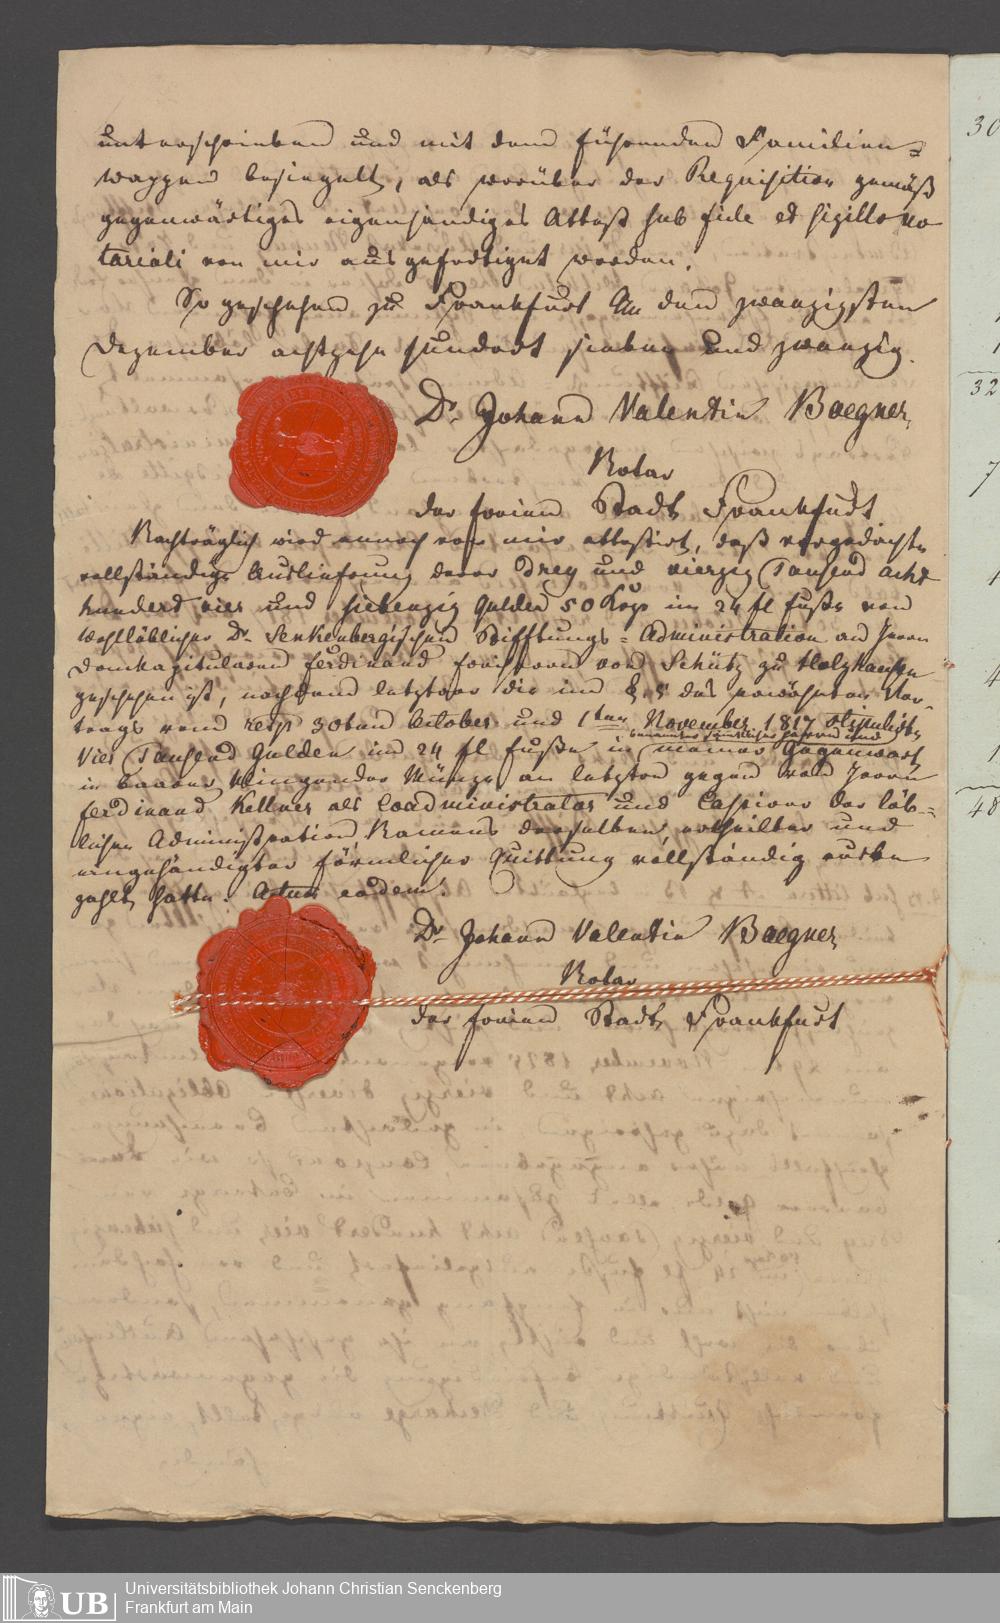 unterschrieben und mit dem führenden Familien=
wappen besiegelt, als worüber der Requisition gemäß
gegenwärtiges eigenhändiges Attest sub fide et sigillo no
tariali von mir ausgefertiget worden.
So geschehen zu Frankfurt am den zwanzigsten
Dezember achtzehn hundert sieben und zwanzig.
Dr. Johann Valentin Baegner,
Notar
der freien Stadt Frankfurt
Nachträglich wird annoch von mir attestirt, daß vorgedachte
vollständige Auslieferung derer Drey und vierzig Tausend acht
hundert vier und siebenzig Gulden 50 Xr im 24 fl Fuße von
Wohllöblicher Dr. Senkenbergischen Stifftungs=Administration an Herrn
Domkapitularen Ferdinand Freiherrn von Schütz zu Holzhausen
geschehen ist, nachdem letzterer die im §. 5 des erwähnten Ver-
trags vom resp 30ten October und 1ten November 1817 stipulirte
Vier Tausend Gulden im 24 fl Fuße in meiner Gegenwart
in baarer klingender Münze an letzten gegen von Herrn
Ferdinand Kellner als Coadministrator und Cassierer der löb=
lichen Administration Namens derselben ertheilter und
eingehändigter förmlicher Quittung vollständig ausbe
zahlt hatte. Actum eodem.
Dr. Johann Valentin Baegner,
Notar
der freien Stadt Frankfurt
30
32
7
4
1
48
Universitätsbibliothek Johann Christian Senckenberg
Frankfurt am Main
UB